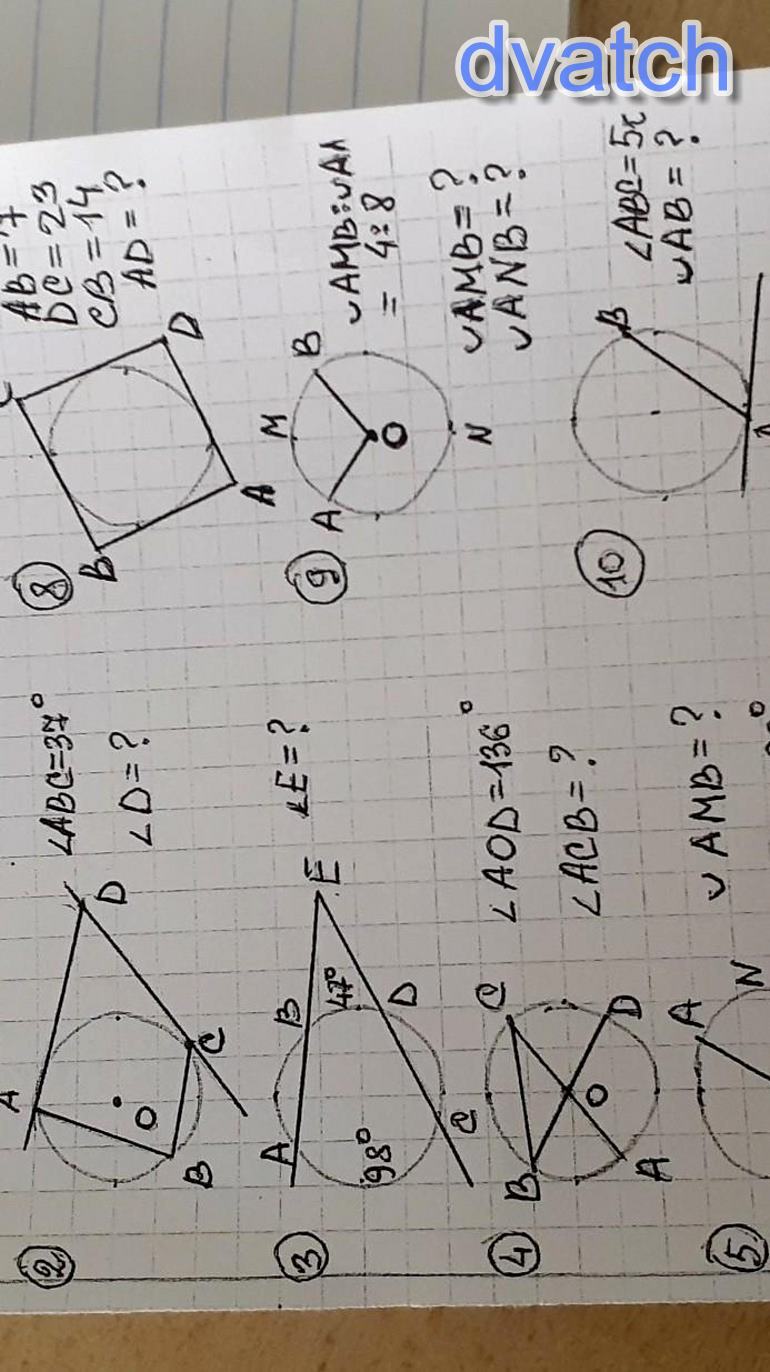 dvatch
②
A
B
C
D
O
∠ABC=37°
∠D=?
③
A
B
C
D
E
98°
47°
∠E=?
④
A
B
C
D
O
∠AOD=136°
∠ACB=?
⑤
A
N
◡AMB=?
⑧
B
A
D
AB=7
DC=23
CB=14
AD=?
⑨
A
M
B
O
N
◡AMB:◡AN
=4:8
◡AMB=?
◡ANB=?
⑩
B
A
∠ABC=5
◡AB=?